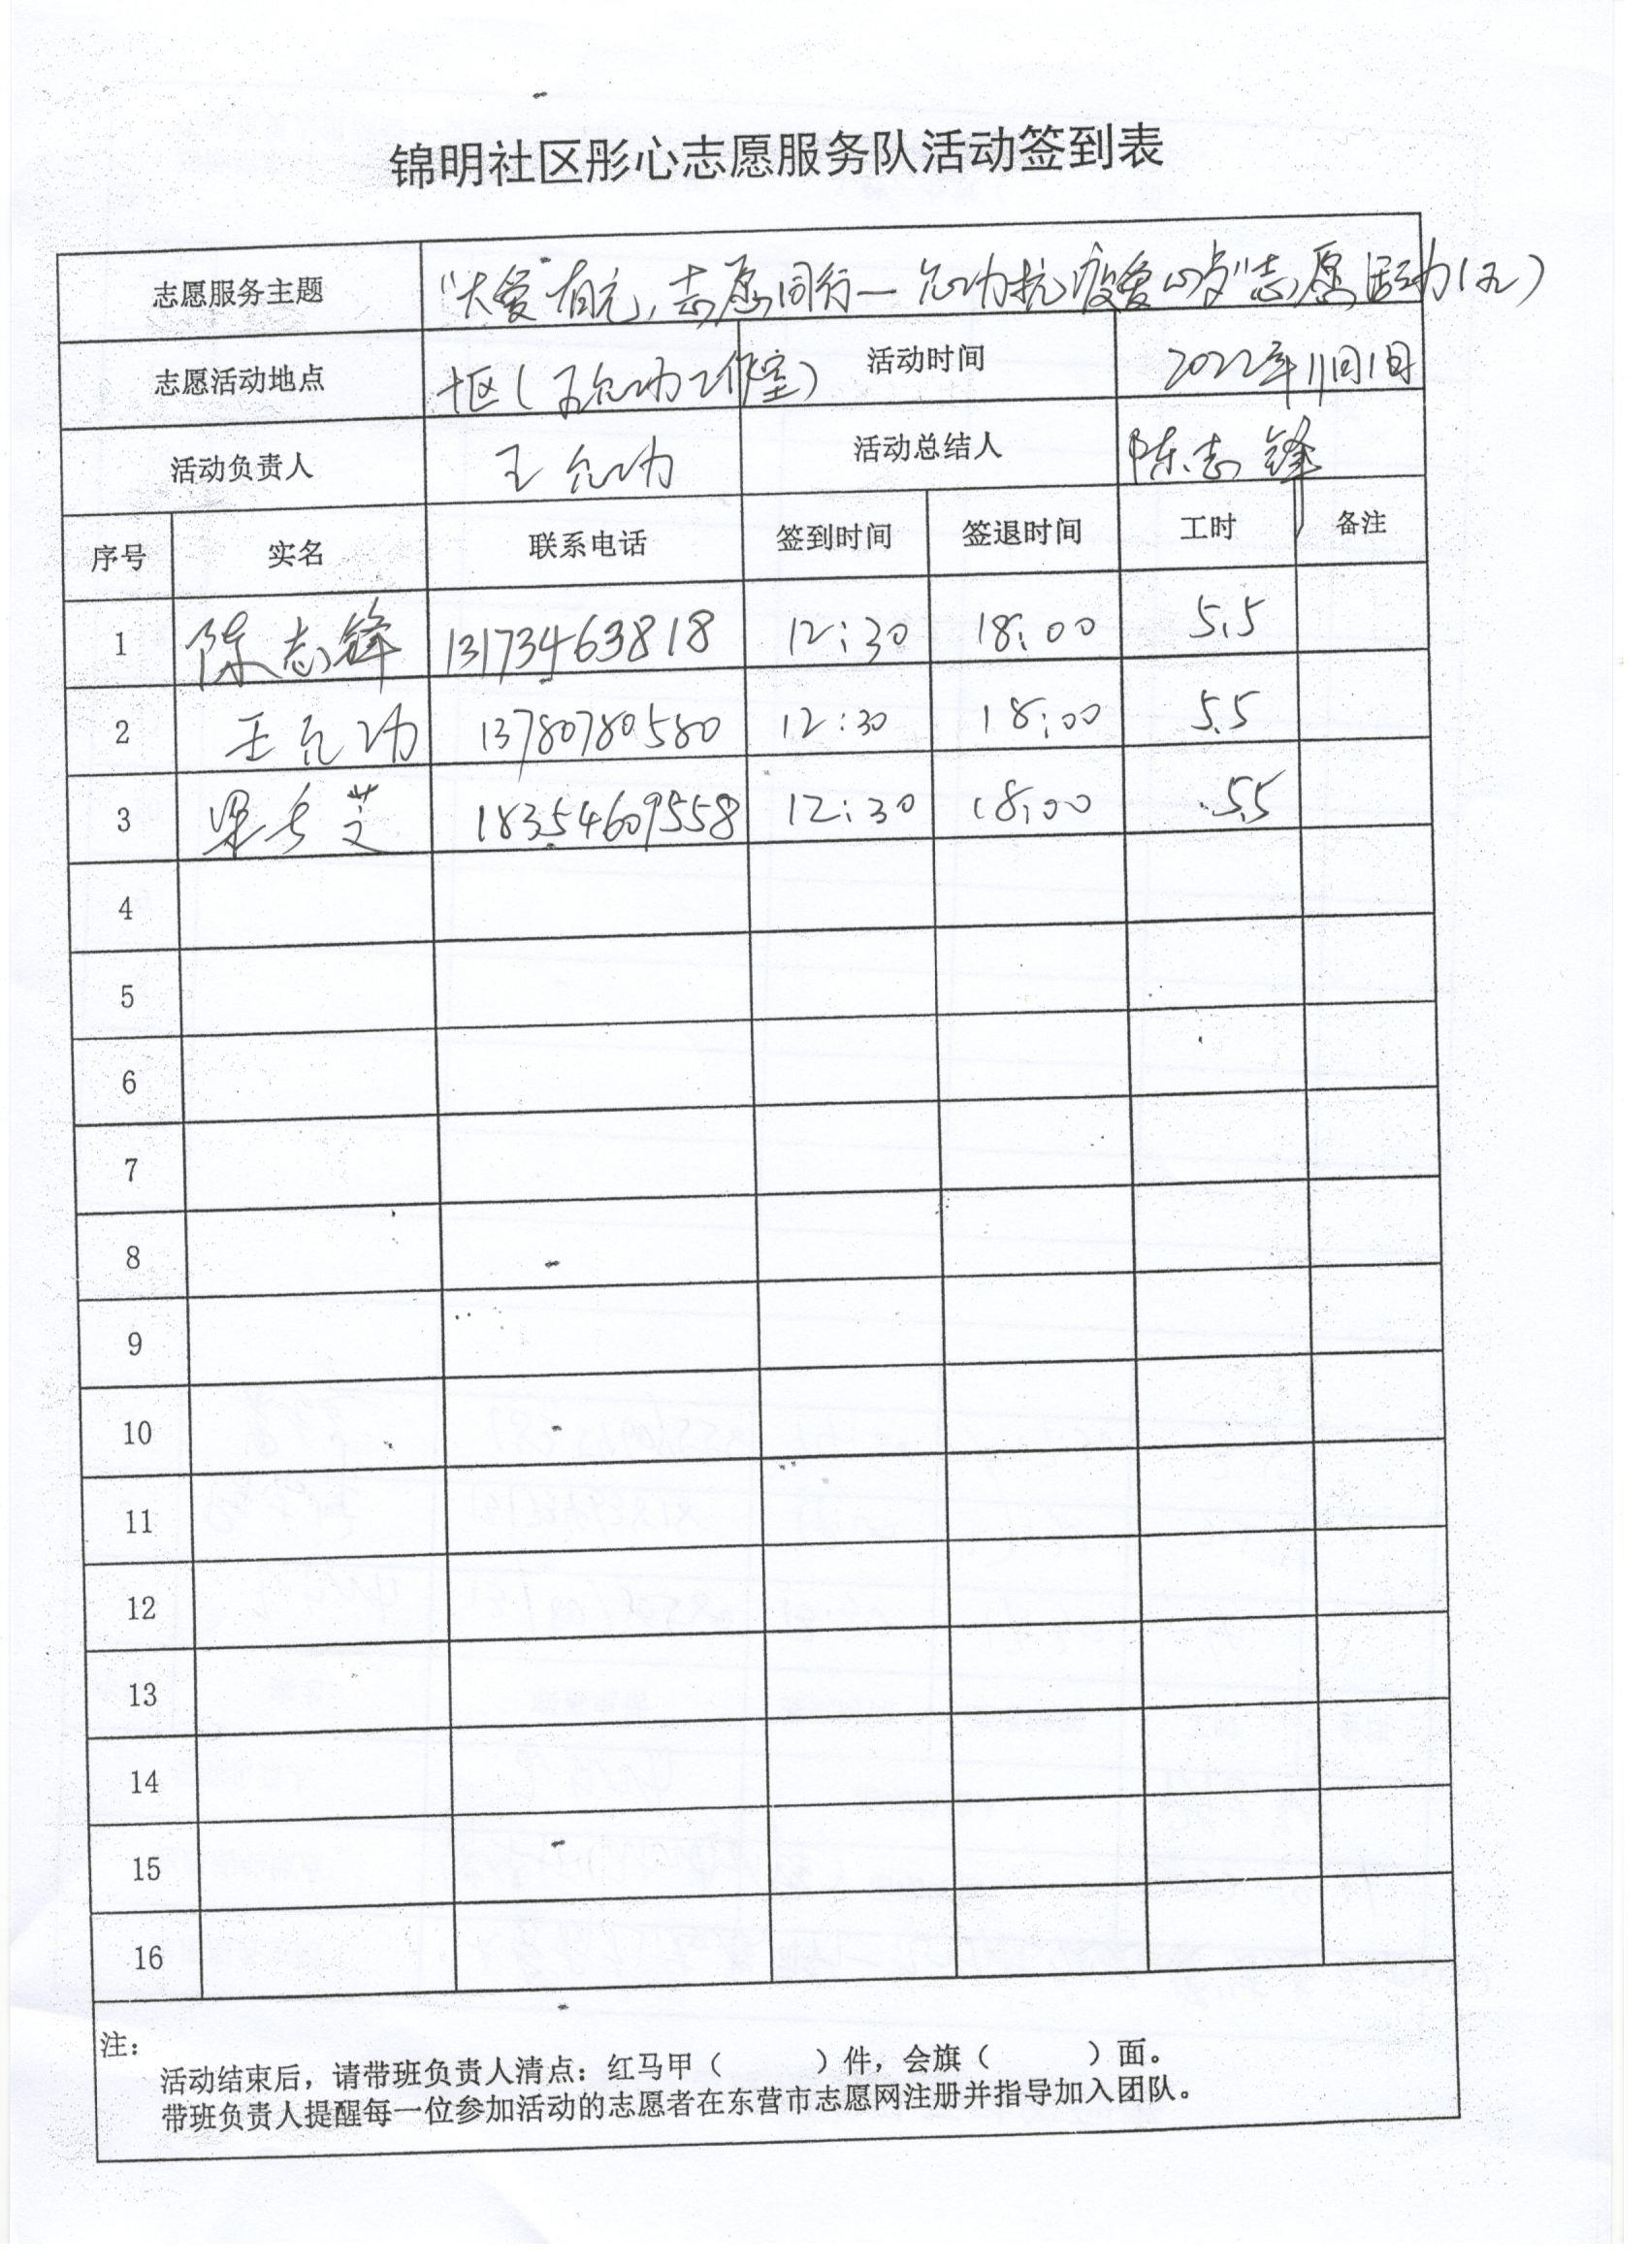 锦明社区彤心志愿服务队活动签到表
志愿服务主题 “大爱有光,志愿同行—允功抗疫爱心岗”志愿活动(五)
志愿活动地点 十区(王允功工作室) 活动时间 2022年11月1日
活动负责人 王允功 活动总结人 陈志锋
序号 实名 联系电话 签到时间 签退时间 工时 备注
1 陈志锋 13173463818 12:30 18:00 5.5
2 王允功 13780780580 12:30 18:00 5.5
3 梁 芝 18354609558 12:30 18:00 5.5
4
5
6
7
8
9
10
11
12
13
14
15
16
注:
活动结束后,请带班负责人清点:红马甲( )件,会旗( )面。
带班负责人提醒每一位参加活动的志愿者在东营市志愿网注册并指导加入团队。